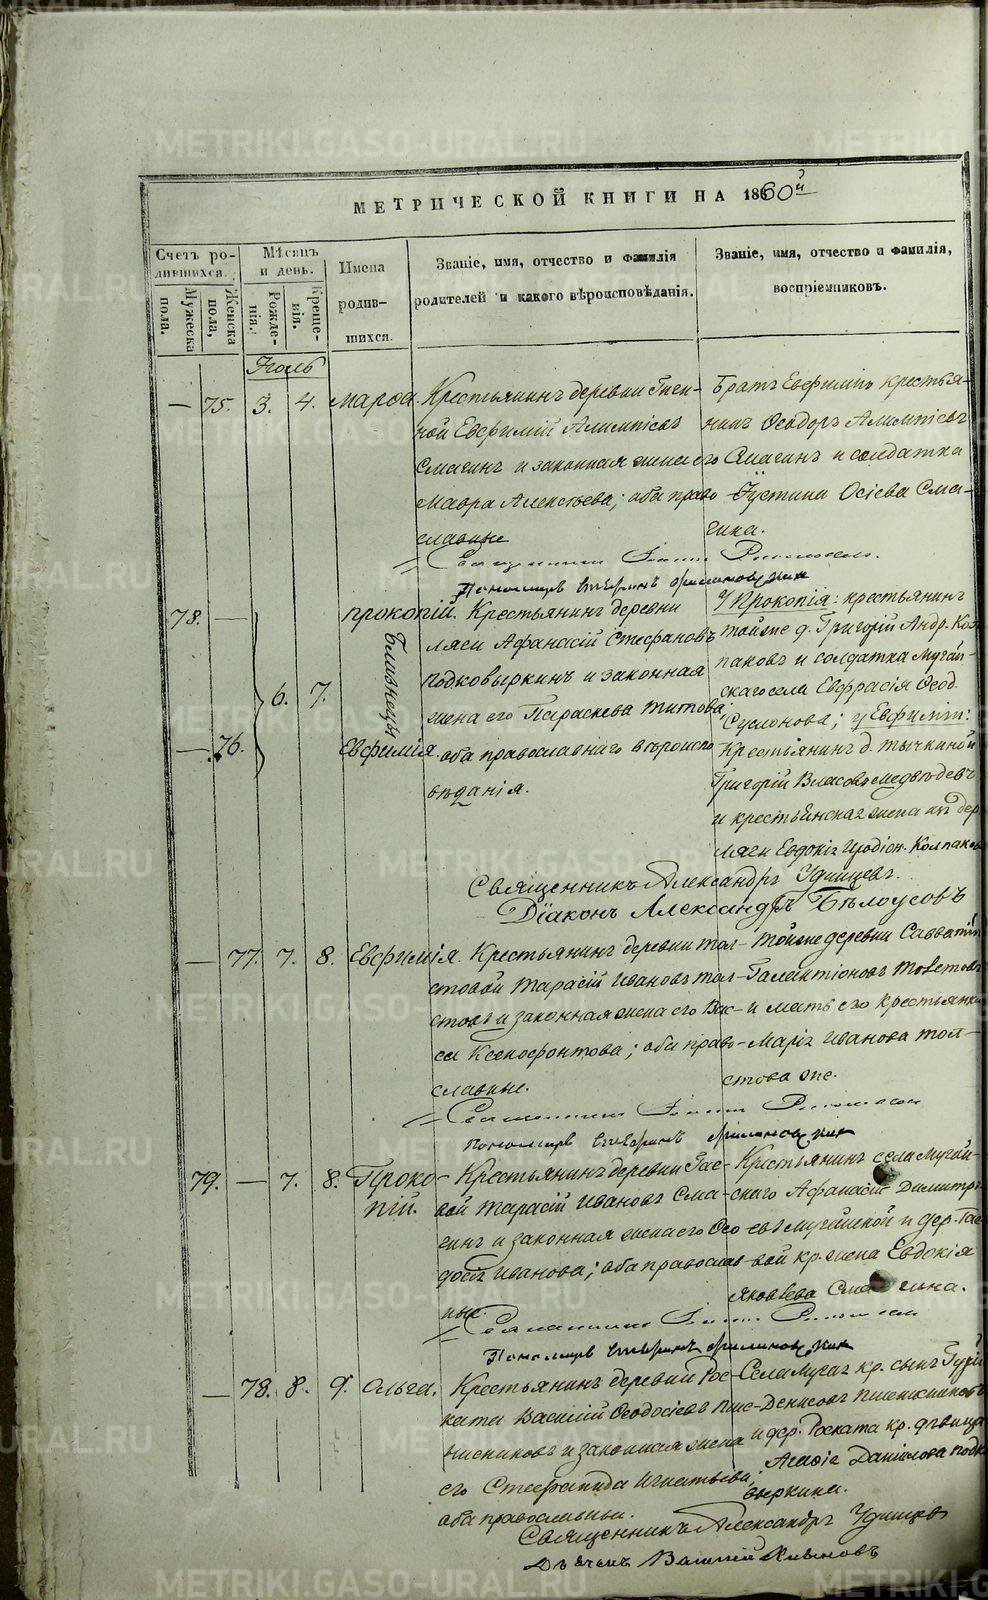 МЕТРИЧЕСКОЙ КНИГИ НА 1860й
Счетъ родившихся.
Мужеска пола.
Женска пола,
Мѣсяцъ и день.
Рожденія.
Крещенія.
Имена родившихся.
Званіе, имя, отчество и фамилія родителей и какого вѣроисповѣданія.
Званіе, имя, отчество и фамилія, воспріемниковъ.
Іюль
— 75. 3. 4. Марѳа.
Крестьянинъ деревни
ной Евфимій Алимпіевъ
Смагинъ и законная жена его
Мавра Алексѣева; оба право
славные
Братъ Евфимія крестья-
нинъ Ѳеодоръ Алимпіевъ
Смагинъ и солдатка
Іустина Осіева Сма-
гина.
78. — 6. 7. Прокопій.
Близнецы
— 76. Евфимія.
Крестьянинъ деревни
Ляги Афанасій Стефановъ
Подковыркинъ и законная
жена его Параскева Титова;
оба православнаго вѣроиспо
вѣданія.
У Прокопія: крестьянинъ
тойже д. Григорій Андр. Кол
паковъ и солдатка Мугай-
скаго села Евфрасія Ѳеод.
Суслонова; у Евфиміи:
Крестьянинъ д. Тычкиной
Григорій Власовъ Медвѣдевъ
и крестьянская жена дер.
Ляги Евдокія Колпаков
Священникъ Александръ Удинцевъ.
Діаконъ Александръ Бѣлоусовъ
— 77. 7. 8. Евфимія.
Крестьянинъ деревни Тол-
стовой Тарасій Ивановъ Тол-
стовъ и законная жена его Вас-
са Ксенофонтова; оба право-
славные.
Тойже деревни Савватій
Галактіоновъ Толстовъ
и мать его крестьянка
Марія Иванова Тол-
стова же.
79. — 7. 8. Проко-
пій.
Крестьянинъ деревни Гае-
вой Тарасій Ивановъ Сма-
гинъ и законная жена его Ѳео
досія Иванова; оба православ
ные.
Крестьянинъ села Мугай-
скаго Афанасій Димитрі-
евъ Мугайской и дер. Гае-
вой кр. жена Евдокія
Яковлева Смагина.
— 78. 8. 9. Ольга.
Крестьянинъ деревни Рос-
каты Василій Ѳеодосіевъ Пше-
ничниковъ и законная жена
его Стефанида Игнатьева;
оба православные.
Села Мугая кр. сынъ Гурій
Денисовъ Пшеничниковъ
и дер. Роската кр. дѣвица
Агафія Даніилова Подко
выркина.
Священникъ Александръ Удинцевъ
Дьячекъ Василій
METRIKI.GASO-URAL.RU